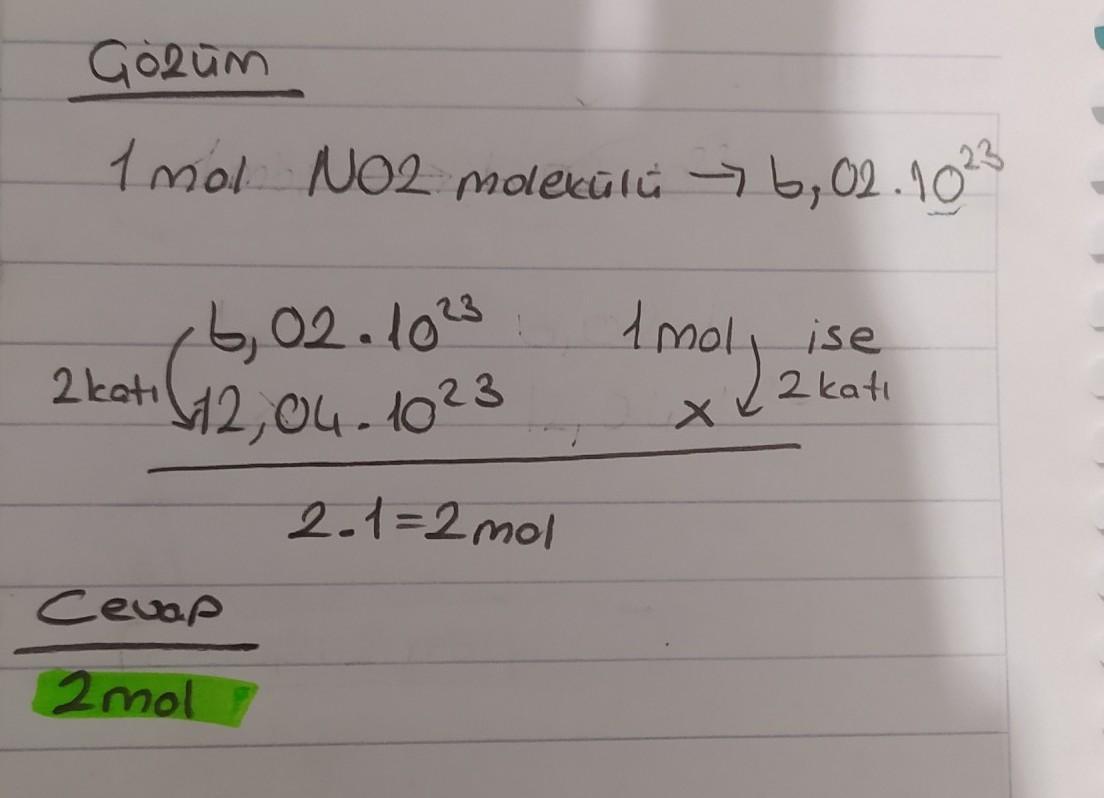 Çözüm
1 mol NO2 molekülü → 6,02.10²³
6,02.10²³ 1mol ise
2katı 12,04.10²³ x 2katı
2.1=2mol
Cevap
2mol